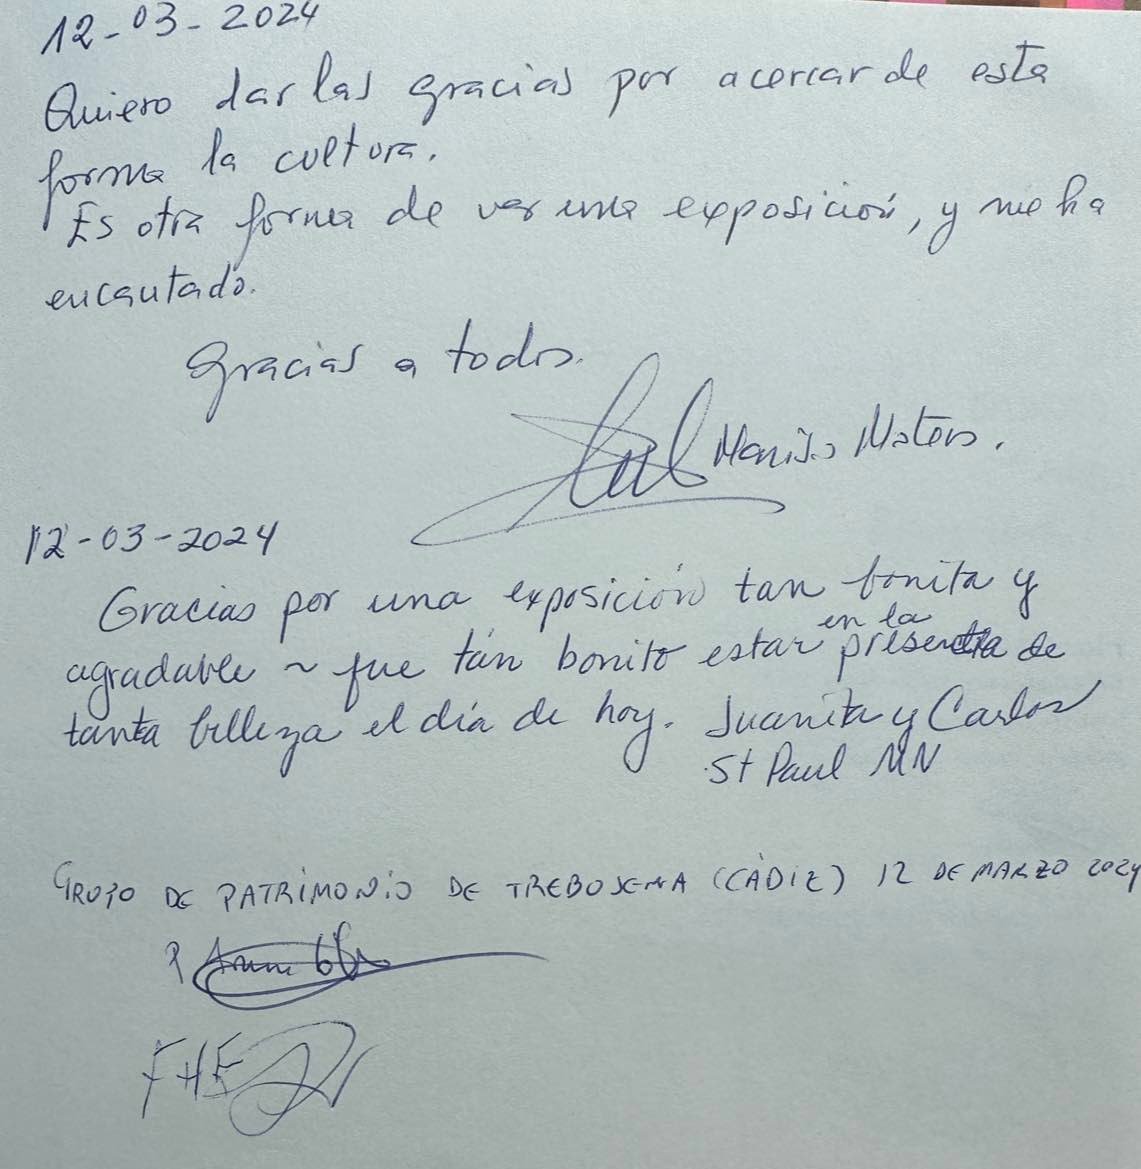 12-03-2024
Quiero dar las gracias por acercar de esta
forma la cultura.
Es otra forma de ver una exposición, y me ha
encantado.
Gracias a todos.
Matos.
12-03-2024
Gracias por una exposición tan bonita y
agradable ~ fue tán bonito estar en la presencia de
tanta belleza el día de hoy. Juanita y Carlos
St Paul MN
GRUPO DE PATRIMONIO DE TREBUJENA (CÁDIZ) 12 DE MARZO 2024